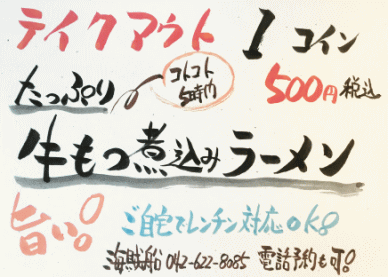 テイクアウト 1コイン
たっぷり コトコト 5時間 500円 税込
牛もつ煮込みラーメン
旨い。 ご自宅でレンチン対応OK!
海賊船 042-622-8085 電話予約も可!